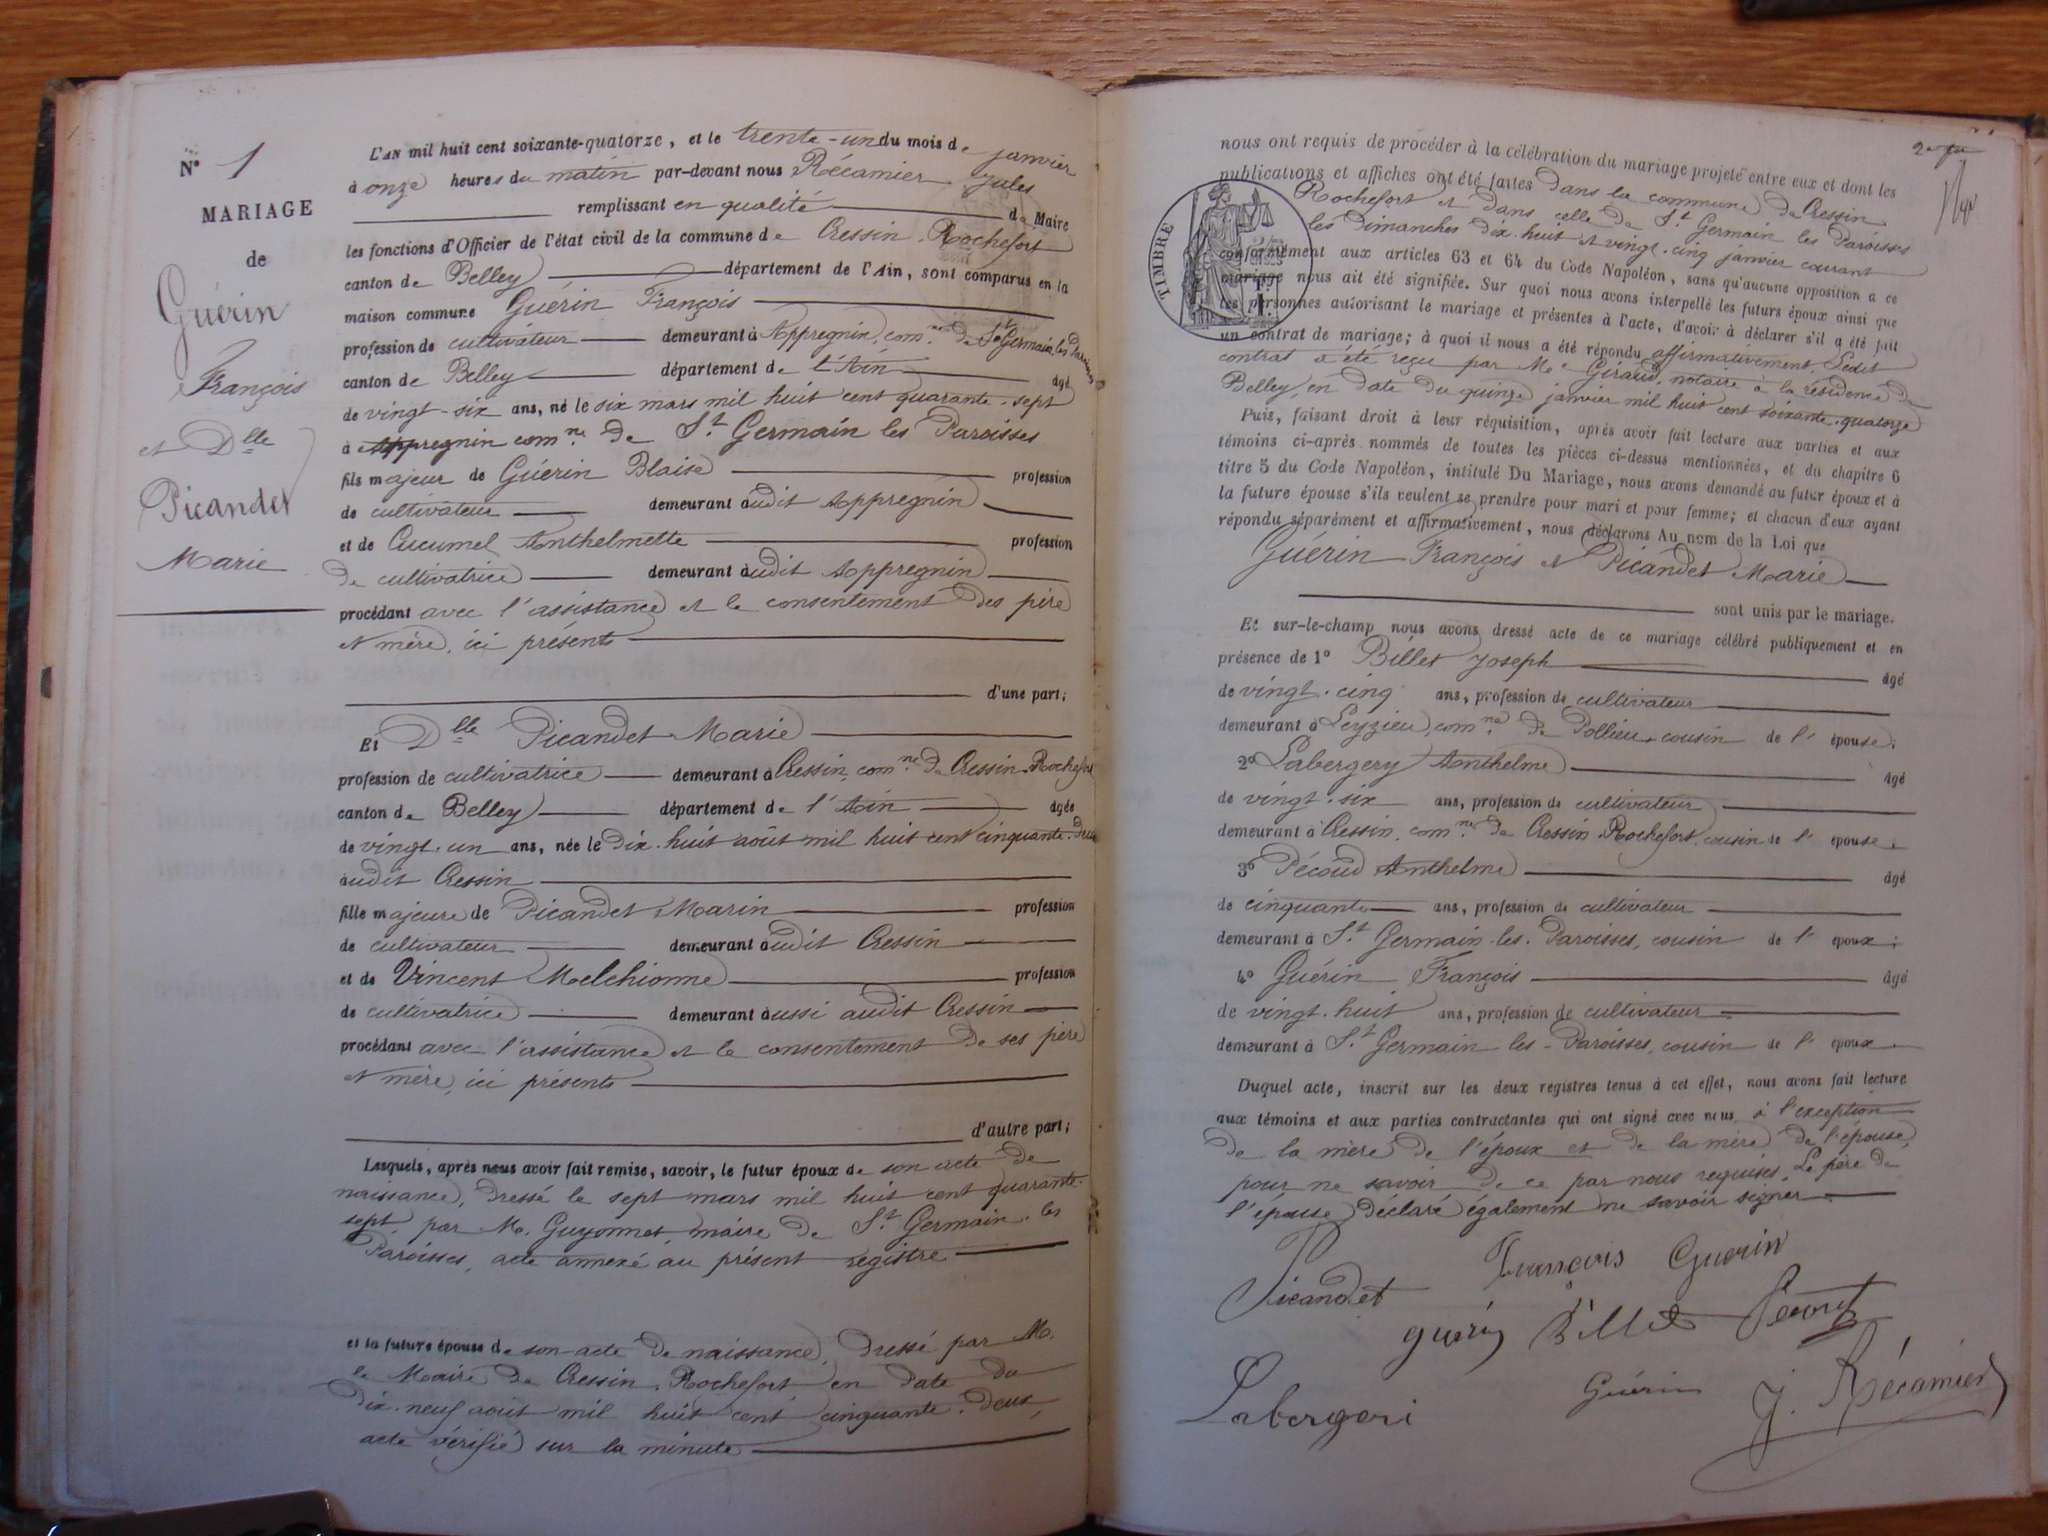 N° 1
MARIAGE
de
Guérin
François
et Dlle
Picandet
Marie
L'AN mil huit cent soixante-quatorze, et le trente-un du mois de janvier
à onze heures du matin par-devant nous Récamier Jules
remplissant en qualité de Maire
les fonctions d'Officier de l'état civil de la commune de Cressin-Rochefort
canton de Belley département de l'Ain, sont comparus en la
maison commune Guérin François
profession de cultivateur demeurant à Appregnin, comne de St Germain les Paroisses
canton de Belley département de l'Ain âgé
de vingt-six ans, né le six mars mil huit cent quarante-sept
à Appregnin comne de St Germain les Paroisses
fils majeur de Guérin Blaise profession
de cultivateur demeurant audit Appregnin
et de Cucumel Anthelmette profession
de cultivatrice demeurant audit Appregnin
procédant avec l'assistance et le consentement des père
et mère, ici présents
d'une part;
Et Dlle Picandet Marie
profession de cultivatrice demeurant à Cressin, comne de Cressin-Rochefort
canton de Belley département de l'Ain âgée
de vingt-un ans, née le dix-huit août mil huit cent cinquante-deux
audit Cressin
fille majeure de Picandet Marin profession
de cultivateur demeurant audit Cressin
et de Vincent Melchionne profession
de cultivatrice demeurant aussi audit Cressin
procédant avec l'assistance et le consentement de ses père
et mère, ici présents
d'autre part;
Lesquels, après nous avoir fait remise, savoir, le futur époux de son acte de
naissance, dressé le sept mars mil huit cent quarante-
sept par M. Guyonnet maire de St Germain-les
Paroisses, acte annexé au présent registre
et la future épouse de son acte de naissance, dressé par M.
le Maire de Cressin-Rochefort en date du
dix-neuf août mil huit cent cinquante-deux,
acte vérifié sur la minute
nous ont requis de procéder à la célébration du mariage projeté entre eux et dont les
publications et affiches ont été faites dans la commune de Cressin
Rochefort et dans celle de St Germain les Paroisses
les Dimanches dix-huit et vingt-cinq janvier courant
TIMBRE
conformément aux articles 63 et 64 du Code Napoléon, sans qu'aucune opposition à ce
mariage nous ait été signifiée. Sur quoi nous avons interpellé les futurs époux ainsi que
les personnes autorisant le mariage et présentes à l'acte, d'avoir à déclarer s'il a été fait
un contrat de mariage; à quoi il nous a été répondu affirmativement. Ledit
contrat a été reçu par Me Giraud, notaire à la résidence de
Belley, en date du quinze janvier mil huit cent soixante-quatorze
Puis, faisant droit à leur réquisition, après avoir fait lecture aux parties et aux
témoins ci-après nommés de toutes les pièces ci-dessus mentionnées, et du chapitre 6
titre 5 du Code Napoléon, intitulé Du Mariage, nous avons demandé au futur époux et à
la future épouse s'ils veulent se prendre pour mari et pour femme; et chacun d'eux ayant
répondu séparément et affirmativement, nous déclarons Au nom de la Loi que
Guérin François et Picandet Marie
sont unis par le mariage.
Et sur-le-champ nous avons dressé acte de ce mariage célébré publiquement et en
présence de 1° Billet Joseph âgé
de vingt-cinq ans, profession de cultivateur
demeurant à Leyzieu, comne de Pollieu, cousin de l'épouse;
2° Labergery Anthelme âgé
de vingt-six ans, profession de cultivateur
demeurant à Cressin, comne de Cressin-Rochefort, cousin de l'épouse;
3° Pécoud Anthelme âgé
de cinquante ans, profession de cultivateur
demeurant à St Germain-les-Paroisses, cousin de l'époux;
4° Guérin François âgé
de vingt-huit ans, profession de cultivateur
demeurant à St Germain-les-Paroisses, cousin de l'époux
Duquel acte, inscrit sur les deux registres tenus à cet effet, nous avons fait lecture
aux témoins et aux parties contractantes qui ont signé avec nous à l'exception
de la mère de l'époux et de la mère de l'épouse,
pour ne savoir de ce par nous requises. Le père de
l'épouse déclaré également ne savoir signer
Picandet François Guerin
guérin Billet Pécoud
Labergeri Guérin J. Récamier